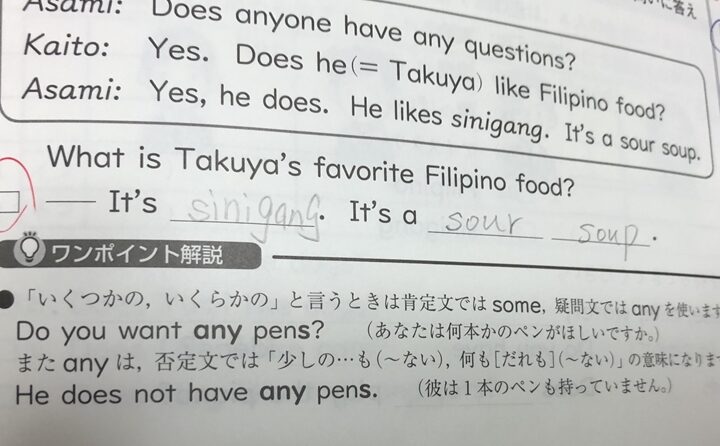 Asami: Does anyone have any questions?
に答え
Kaito: Yes. Does he (= Takuya) like Filipino food?
Asami: Yes, he does. He likes sinigang. It's a sour soup.
What is Takuya's favorite Filipino food?
— It's sinigang. It's a sour soup.
ワンポイント解説
●「いくつかの，いくらかの」と言うときは肯定文では some，疑問文では any を使います
Do you want any pens? （あなたは何本かのペンがほしいですか。）
また any は，否定文では「少しの…も（～ない），何も［だれも］（～ない）」の意味になりま
He does not have any pens. （彼は１本のペンも持っていません。）